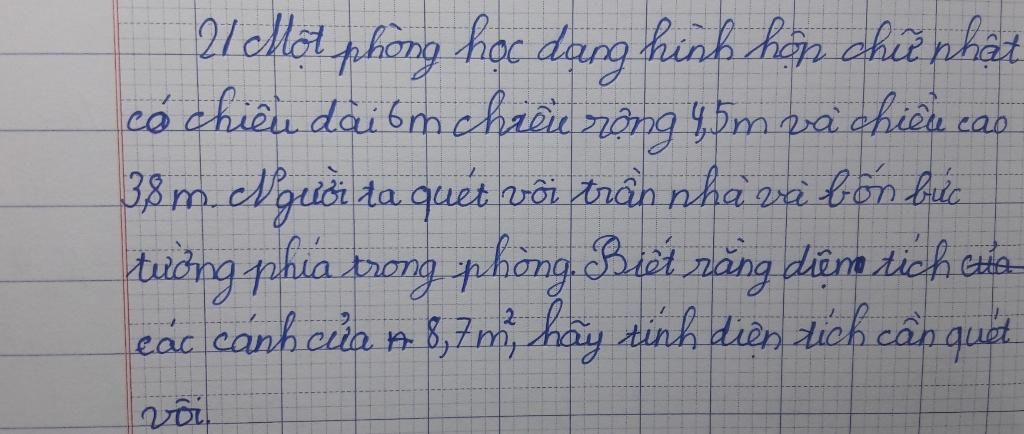 2/ Một phòng học dạng hình hộp chữ nhật
có chiều dài 6m chiều rộng 4,5m và chiều cao
3,8m. Người ta quét vôi trần nhà và bốn bức
tường phía trong phòng. Biết rằng diện tích của
các cánh cửa 8,7m², hãy tính diện tích cần quét
vôi.